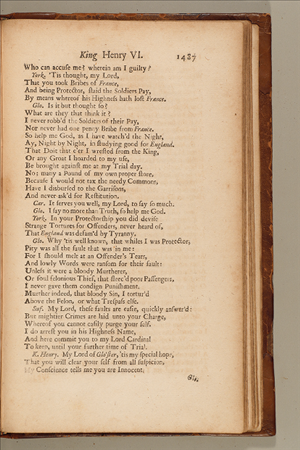 King Henry VI. 1487
Who can accuse me? wherein am I guilty?
York. 'Tis thought, my Lord,
That you took Bribes of France,
And being Protector, staid the Soldiers Pay,
By means whereof his Highness hath lost France.
Glo. Is it but thought so?
What are they that think it?
I never robb'd the Soldiers of their Pay,
Nor never had one penny Bribe from France.
So help me God, as I have watch'd the Night,
Ay, Night by Night, in studying good for England.
That Doit that e'er I wrested from the King,
Or any Groat I hoarded to my use,
Be brought against me at my Trial day.
No; many a Pound of my own proper store,
Because I would not tax the needy Commons,
Have I disbursed to the Garrisons,
And never ask'd for Restitution.
Car. It serves you well, my Lord, to say so much.
Glo. I say no more than Truth, so help me God.
York. In your Protectorship you did devise
Strange Tortures for Offenders, never heard of,
That England was defam'd by Tyranny.
Glo. Why 'tis well known, that whiles I was Protector,
Pity was all the fault that was in me:
For I should melt at an Offender's Tears,
And lowly Words were ransom for their fault:
Unless it were a bloody Murtherer,
Or foul felonious Thief, that fleec'd poor Passengers,
I never gave them condign Punishment.
Murther indeed, that bloody Sin, I tortur'd
Above the Felon, or what Trespass else.
Suf. My Lord, these faults are easie, quickly answer'd:
But mightier Crimes are laid unto your Charge,
Whereof you cannot easily purge your self.
I do arrest you in his Highness Name,
And here commit you to my Lord Cardinal
To keep, until your further time of Trial.
K. Henry. My Lord of Glo'ster, 'tis my special hope,
That you will clear your self from all suspicion,
My Conscience tells me you are Innocent.
Glo.